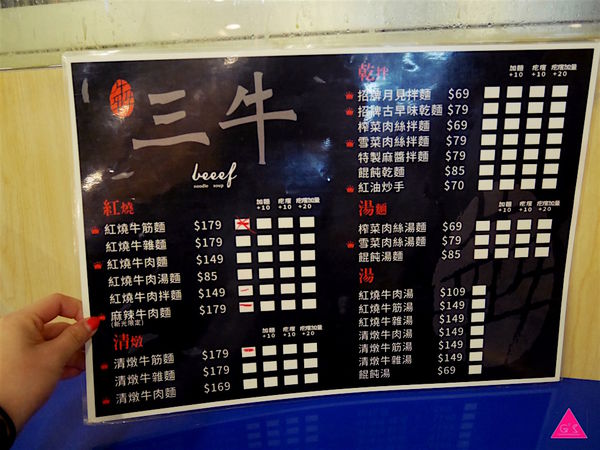 三牛
beeef
noodle soup
紅燒 加麵+10 疙瘩+10 疙瘩加量+20
紅燒牛筋麵 $179
紅燒牛雜麵 $179
紅燒牛肉麵 $149
紅燒牛肉湯麵 $85
紅燒牛肉拌麵 $149
麻辣牛肉麵 $179
(新光限定)
清燉 加麵+10 疙瘩+10 疙瘩加量+20
清燉牛筋麵 $179
清燉牛雜麵 $179
清燉牛肉麵 $169
乾拌 加麵+10 疙瘩+10 疙瘩加量+20
招牌月見拌麵 $69
招牌古早味乾麵 $79
榨菜肉絲拌麵 $69
雪菜肉絲拌麵 $79
特製麻醬拌麵 $79
餛飩乾麵 $85
紅油炒手 $70
湯麵 加麵+10 疙瘩+10 疙瘩加量+20
榨菜肉絲湯麵 $69
雪菜肉絲湯麵 $79
餛飩湯麵 $85
湯
紅燒牛肉湯 $109
紅燒牛筋湯 $149
紅燒牛雜湯 $149
清燉牛肉湯 $149
清燉牛筋湯 $149
清燉牛雜湯 $149
餛飩湯 $69
G'S